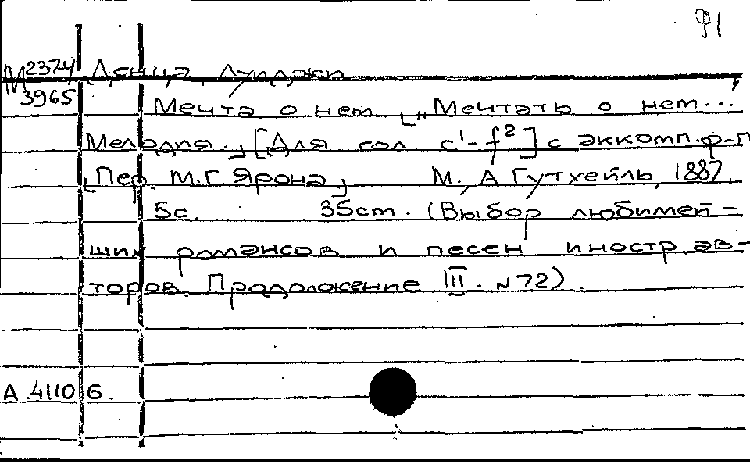 Я1
М 2374/3965 Денца, Луиджи
Мечта о нем. „Мечтать о нем...
Мелодия." [Для сол. c¹-f²] с аккомп. ф-п
[Пер. М.Г. Ярона] М., А. Гутхейль, 1887.
5с. 35cm. (Выбор любимей-
ших романсов и песен иностр. ав-
торов. Продолжение III. № 72).
А 41106.